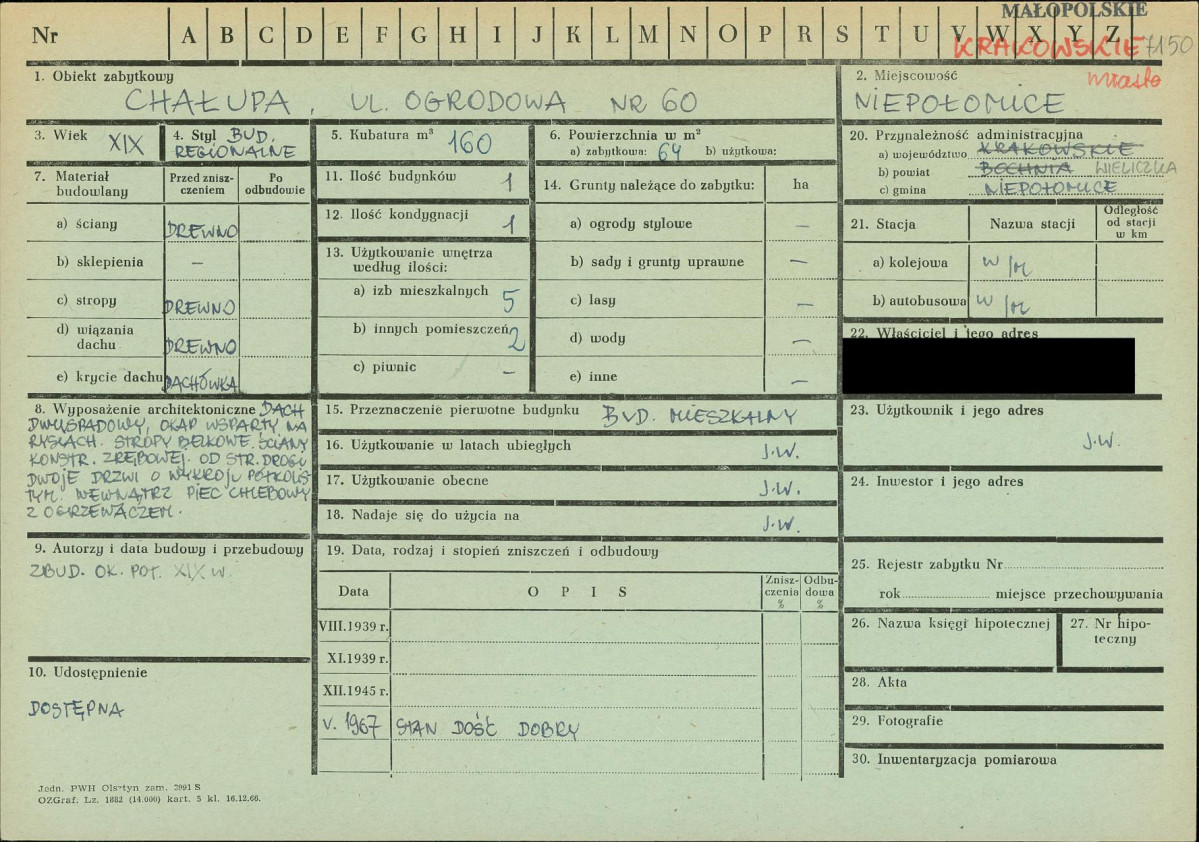 MAŁOPOLSKIE
Nr A B C D E F G H I J K L M N O P R S T U V W X Y Z
KRAKOWSKIE 7150
miasto
1. Obiekt zabytkowy
CHAŁUPA, UL. OGRODOWA NR 60
2. Miejscowość
NIEPOŁOMICE
3. Wiek XIX
4. Styl BUD. REGIONALNE
5. Kubatura m³ 160
6. Powierzchnia w m²
a) zabytkowa: 64 b) użytkowa:
20. Przynależność administracyjna
a) województwo KRAKOWSKIE
b) powiat BOCHNIA WIELICZKA
c) gmina NIEPOŁOMICE
7. Materiał budowlany
Przed znisz-
czeniem
Po
odbudowie
a) ściany DREWNO
b) sklepienia –
c) stropy DREWNO
d) wiązania
dachu DREWNO
e) krycie dachu DACHÓWKA
11. Ilość budynków 1
12. Ilość kondygnacji 1
13. Użytkowanie wnętrza
według ilości:
a) izb mieszkalnych 5
b) innych pomieszczeń 2
c) piwnic –
14. Grunty należące do zabytku: ha
a) ogrody stylowe –
b) sady i grunty uprawne –
c) lasy –
d) wody –
e) inne –
21. Stacja Nazwa stacji
Odległość
od stacji
w km
a) kolejowa W/M
b) autobusowa W/M
22. Właściciel i jego adres
8. Wyposażenie architektoniczne DACH
DWUSPADOWY, OKAP WSPARTY NA
RYSIACH. STROPY BELKOWE. ŚCIANY
KONSTR. ZRĘBOWEJ. OD STR. DROGI
DWOJE DRZWI O WYKROJU PÓŁKOLIS-
TYM. WEWNĄTRZ PIEC CHLEBOWY
Z OGRZEWACZEM.
15. Przeznaczenie pierwotne budynku BUD. MIESZKALNY
16. Użytkowanie w latach ubiegłych J.W.
17. Użytkowanie obecne J.W.
18. Nadaje się do użycia na J.W.
23. Użytkownik i jego adres
J.W.
24. Inwestor i jego adres
9. Autorzy i data budowy i przebudowy
ZBUD. OK. POŁ. XIX W.
19. Data, rodzaj i stopień zniszczeń i odbudowy
Data OPIS
Znisz-
czenia
%
Odbu-
dowa
%
VIII.1939 r.
XI.1939 r.
XII.1945 r.
V. 1967 STAN DOŚĆ DOBRY
25. Rejestr zabytku Nr
rok miejsce przechowywania
26. Nazwa księgi hipotecznej
27. Nr hipo-
teczny
10. Udostępnienie
DOSTĘPNA
28. Akta
29. Fotografie
30. Inwentaryzacja pomiarowa
Jedn. PWH Olsztyn zam. 3991 S
OZGraf. Lz. 1882 (14.000) kart. 5 kl. 16.12.66.